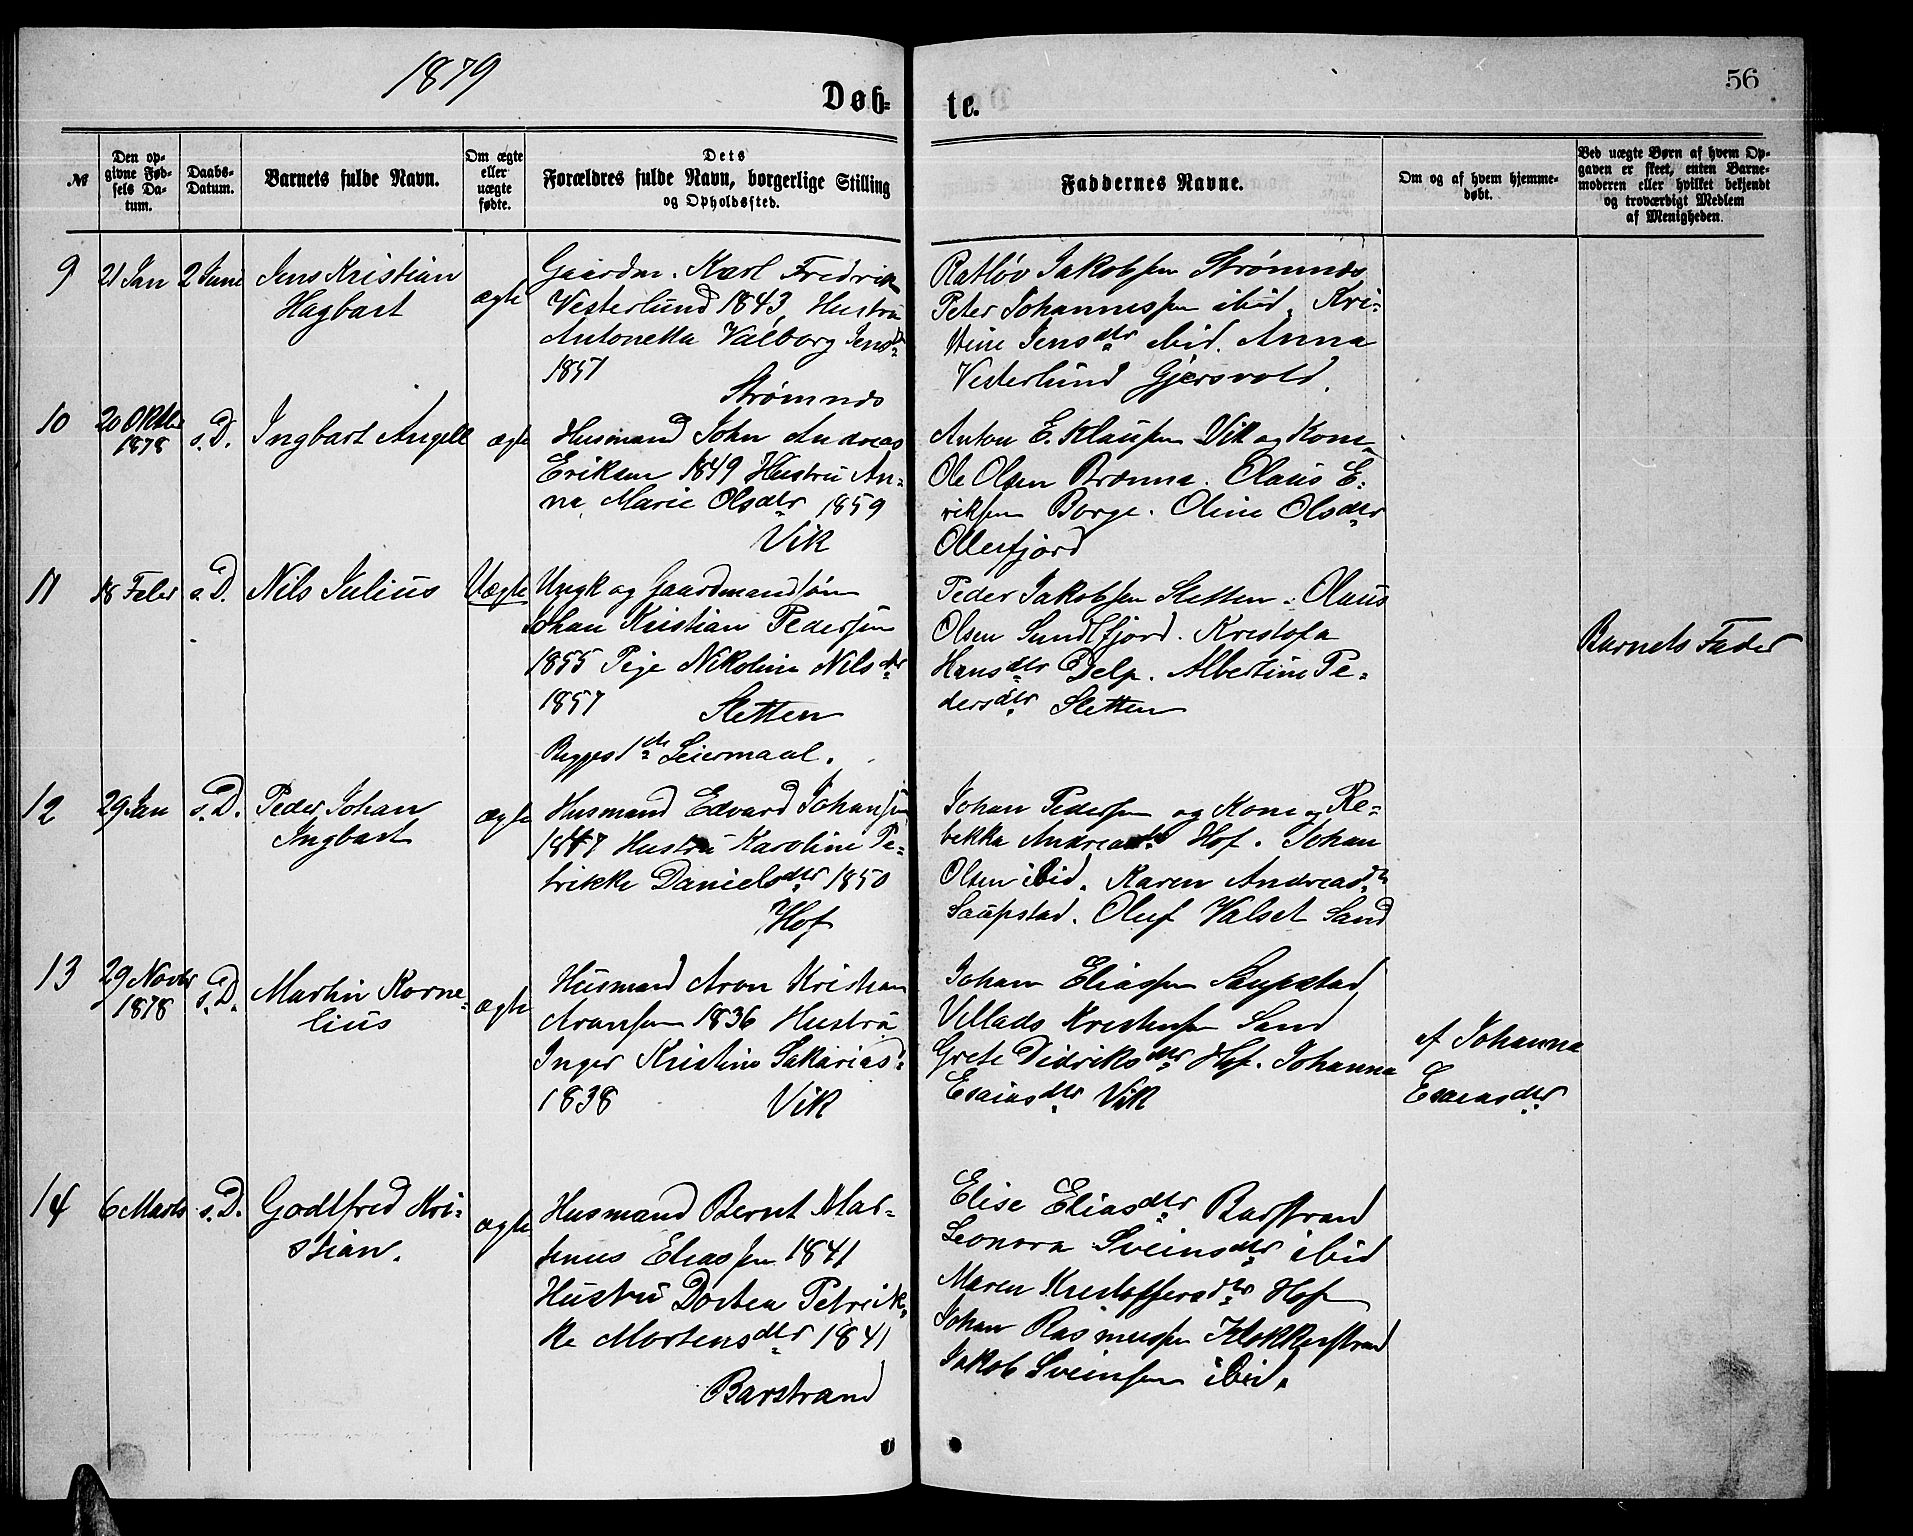 1879
56
Døb-
te.
№
Den op-
givne Fød-
sels Da-
tum.
Daabs-
Datum.
Barnets fulde Navn.
Om ægte
eller
uægte
fødte.
Dets
Forældres fulde Navn, borgerlige Stilling
og Opholdssted.
Faddernes Navne.
Om og af hvem hjemme-
døbt.
Ved uægte Børn af hvem Op-
gaven er skeet, enten Barne-
moderen eller hvilket bekjendt
og troværdigt Medlem
af Menigheden.
9
21 Jan
2 Juni
Jens Kristian
Hagbart
ægte
Gaardm. Karl Fredrik
Vesterlund 1843, Hustru
Antonetta Valborg Jensdtr
1857
Strømnes
Ratløv Jakobsen Strømnes
Peter Johannessen ibid. Kri-
stine Jensdtr ibid. Anna
Vesterlund Gjersvold.
10
20 Oktbr
1878
s.D.
Ingbart Angell
ægte
Husmand John Andreas
Eriksen 1849 Hustru An-
na Marie Olsdtr 1859
Vik
Anton E. Klausen Vik og Kone
Ole Olsen Brænna. Olaus E-
riksen Borge. Oline Olsdtr
Ollesfjord
11
18 Febr
s.D.
Nils Julius
Uægte
Ungk og Gaardmandssøn
Johan Kristian Pedersen
1855 Pige Nikoline Nilsdtr
1857
Sletten
Begges 1ste Leiermaal.
Peder Jakobsen Sletten. Olaus
Olsen Sundlfjord. Kristofa
Hansdtr Delp. Albertine Pe-
dersdtr Sletten
Barnets Fader
12
29 Jan
s.D.
Peder Johan
Ingbart
ægte
Husmand Edvard Johansen
1847 Hustru Karoline Pe-
trikke Danielsdtr 1850
Hof
Johan Pedersen og Kone og Re-
bekka Andreasdtr Hof. Johan
Olsen ibid. Karen Andreasdtr
Saupstad. Oluf Valset Sand
13
29 Novbr
1878
s.D.
Martin Korne-
lius
ægte
Husmand Aron Kristian
Aronsen 1836 Hustru
Inger Kristine Sakariasd.
1838
Vik
Johan Eliassen Saupstad
Villads Kristensen Sand
Grete Didriksdtr Hof. Johanna
Esaiasdtr Vik
af Johanna
Esaiasdtr
14
6 Marts
s.D.
Godtfred Kri-
stian.
ægte
Husmand Bernt Mar-
tinus Eliassen 1841
Hustru Dortea Petrik-
ke Mortensdtr 1841
Barstrand
Elise Eliasdtr Barstrand
Leonora Sveinsdtr ibid
Maren Kristoffersdtr Hof
Johan Rasmussen Klokkerstrand
Jakob Sveinsen ibid.